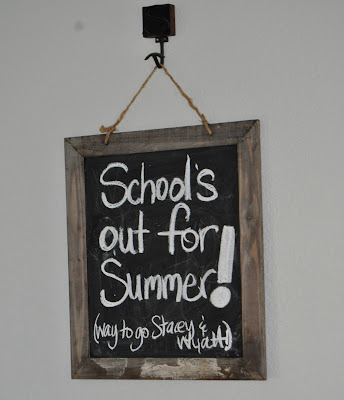 School's
out for
Summer!
(way to go Stacey &
Wyatt!)